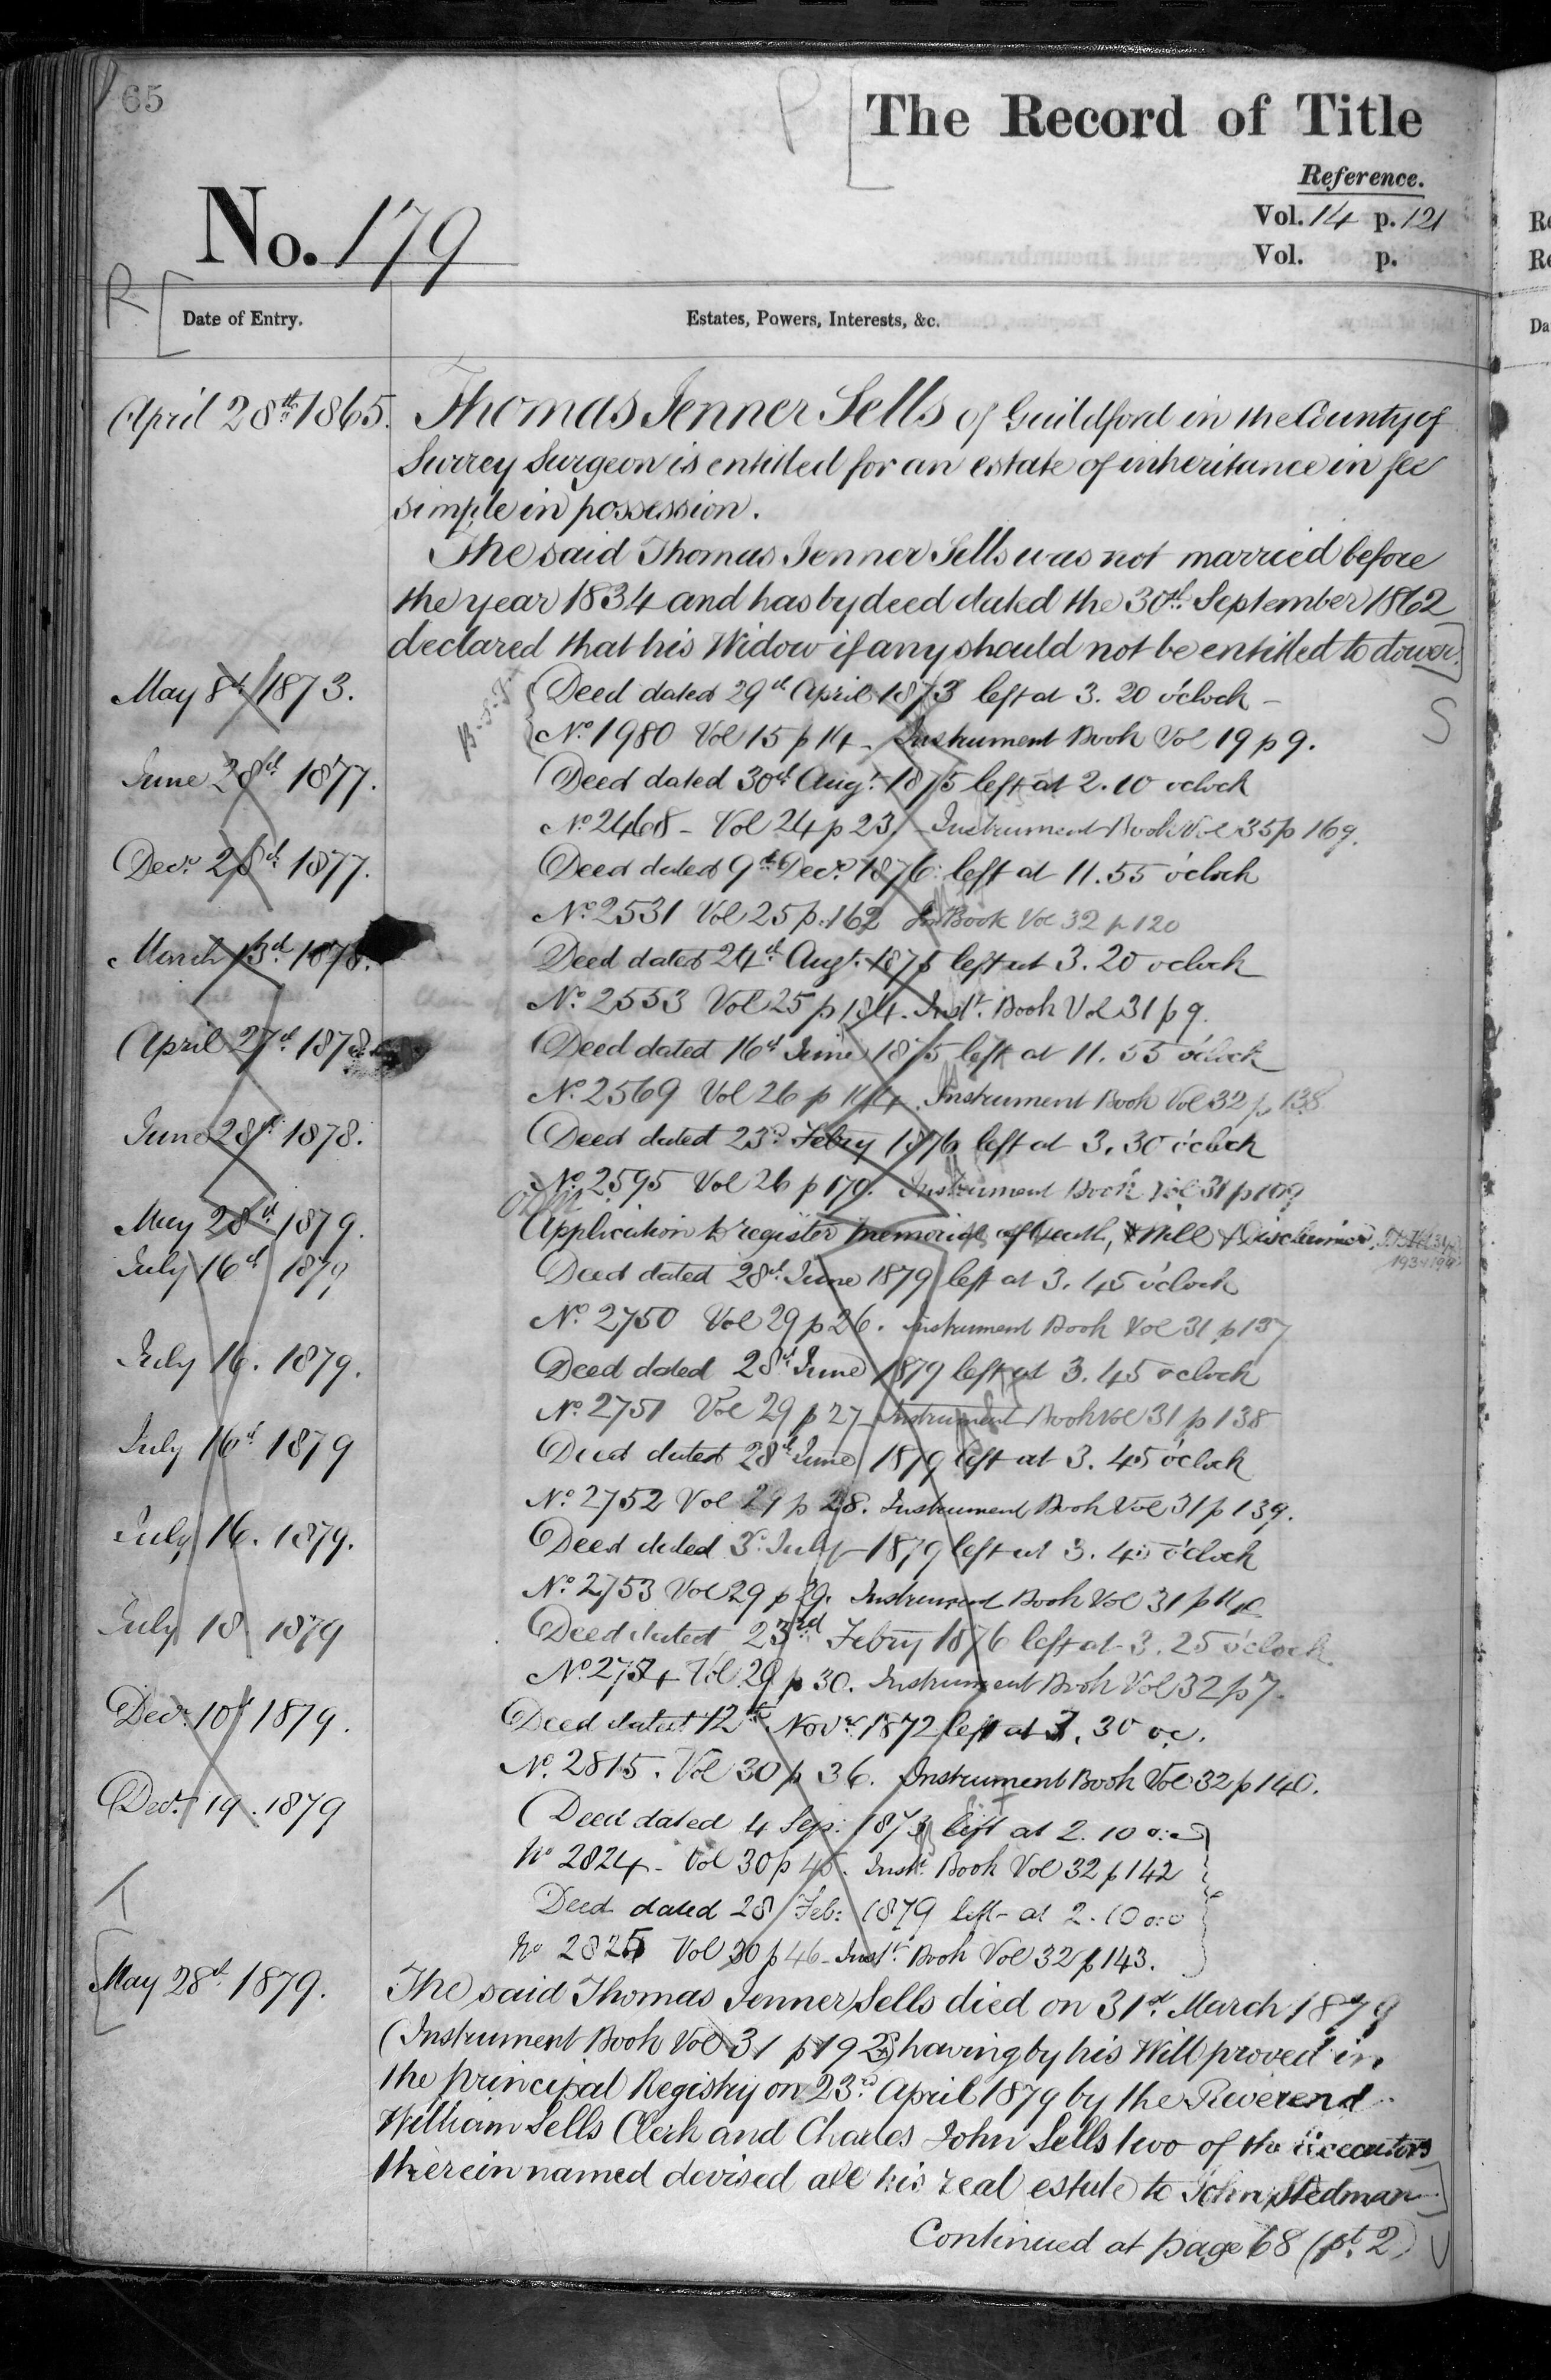 65
P
The Record of Title
Reference.
No. 179
Vol. 14 p. 121
Vol. p.
R
Date of Entry.
Estates, Powers, Interests, &c.
April 28th 1865. Thomas Jenner Sells of Guildford in the County of
Surrey Surgeon is entitled for an estate of inheritance in fee
simple in possession.
The said Thomas Jenner Sells was not married before
the year 1834 and has by deed dated the 30th September 1862
declared that his Widow if any should not be entitled to dower.
S
May 8th 1873. Deed dated 29th April 1873 left at 3.20 o'clock -
No. 1980 Vol 15 p 14 - Instrument Book Vol 19 p 9.
June 28th 1877. Deed dated 30th Augt. 1875 left at 2.10 oclock
No. 2468 - Vol 24 p 23 - Instrument Book Vol 35 p 169.
Decr. 28th 1877. Deed dated 9th Decr. 1876 left at 11.55 o'clock
No. 2531 Vol 25 p. 162 Book Vol 32 p 120
March 13th 1878. Deed dated 24th Augt. 1875 left at 3.20 oclock
No. 2553 Vol 25 p 184. Inst. Book Vol 31 p 9.
April 27th 1878 Deed dated 16th June 1875 left at 11.55 o'clock
No. 2569 Vol 26 p Instrument Book Vol 32 p 138
June 28th 1878. Deed dated 23d Febry 1876 left at 3.30 o'clock
No. 2595 Vol 26 p 170. Instrument Book Vol 31 p 109
May 28th 1879. Application to register memorial of Death, Will & Disclaimer.
July 16th 1879 Deed dated 28th June 1879 left at 3.45 o'clock
No. 2750 Vol 29 p 26. Instrument Book Vol 31 p 137
July 16. 1879. Deed dated 28th June 1879 left at 3.45 oclock
No. 2751 Vol 29 p 27 - Instrument Book Vol 31 p 138
July 16th 1879 Deed dated 28th June 1879 left at 3.45 o'clock
No. 2752 Vol 29 p 28. Instrument Book Vol 31 p 139.
July 16. 1879. Deed dated 3d July 1879 left at 3.45 o'clock
No. 2753 Vol 29 p 29. Instrument Book Vol 31 p 140
July 18 1879 Deed dated 23rd Febry 1876 left at 3.25 o'clock
No. 2754 Vol. 29 p 30. Instrument Book Vol 32 p 7.
Decr. 10th 1879. Deed dated 12th Novr. 1872 left at 3.30 oc.
No. 2815. Vol 30 p 36. Instrument Book Vol 32 p 140.
Decr. 19. 1879 Deed dated 4 Sep: 1873 left at 2.10 o:c
No 2824 - Vol 30 p 45. Inst. Book Vol 32 p 142
Deed dated 28 Feb: 1879 left at 2.10 o:c
T
No 2825 Vol 30 p 46 - Inst. Book Vol 32 p 143.
May 28th 1879. The said Thomas Jenner Sells died on 31st March 1879
(Instrument Book Vol 31 p 192) having by his Will proved in
the principal Registry on 23d April 1879 by the Reverend
William Sells Clerk and Charles John Sells two of the Executors
therein named devised all his real estate to John Stedman
Continued at page 68 (pt. 2)